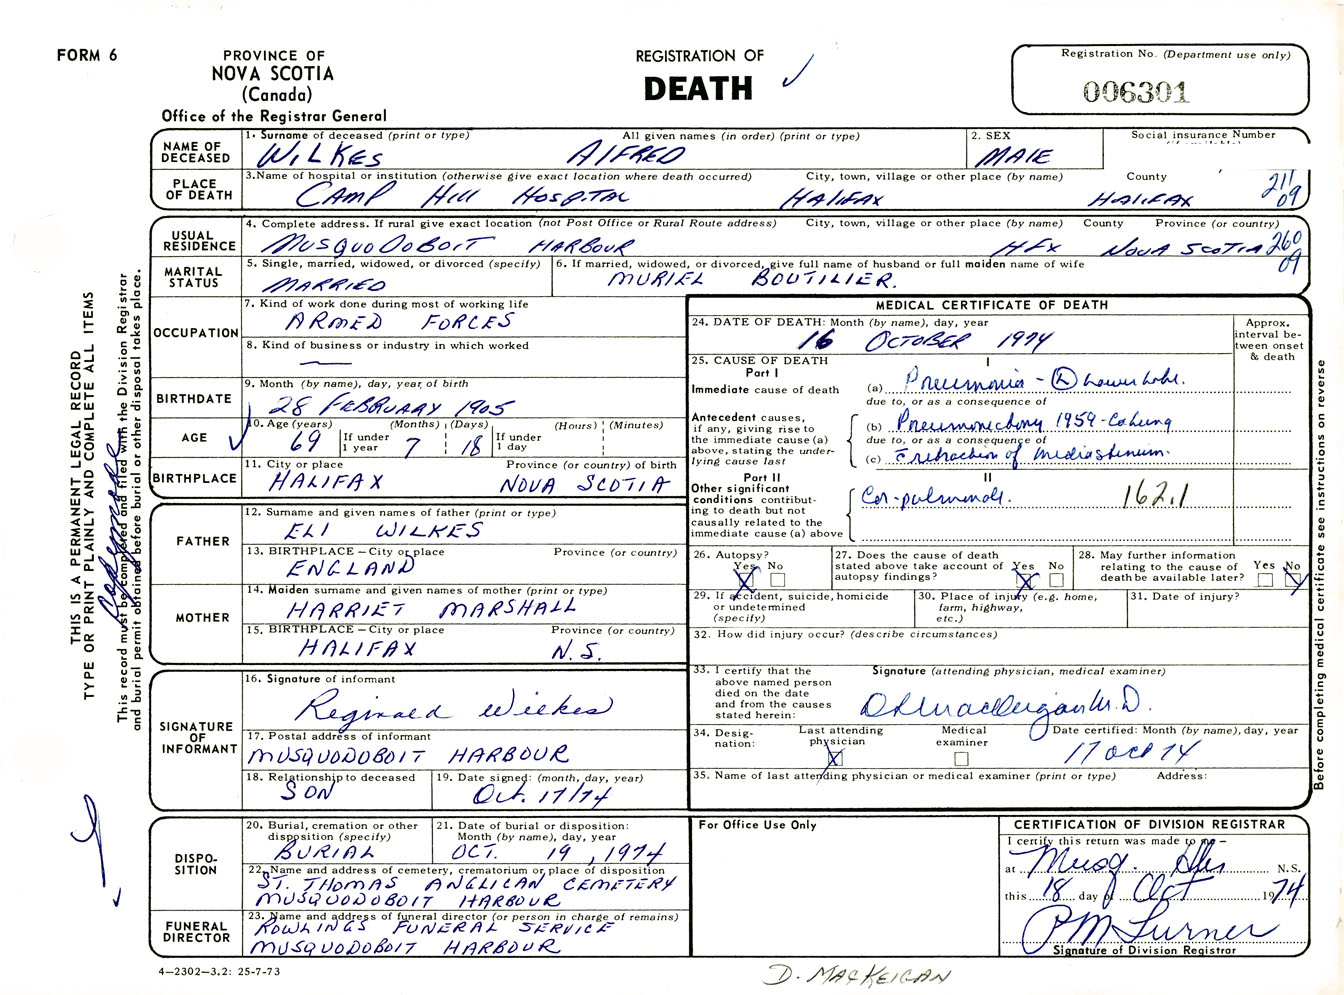 FORM 6
PROVINCE OF
NOVA SCOTIA
(Canada)
Office of the Registrar General
REGISTRATION OF
DEATH
Registration No. (Department use only)
006301
NAME OF DECEASED
1. Surname of deceased (print or type) All given names (in order) (print or type)
WILKES ALFRED
2. SEX
MALE
Social insurance Number
PLACE OF DEATH
3. Name of hospital or institution (otherwise give exact location where death occurred) City, town, village or other place (by name) County
CAMP HILL HOSPITAL HALIFAX HALIFAX
211
09
USUAL RESIDENCE
4. Complete address. If rural give exact location (not Post Office or Rural Route address) City, town, village or other place (by name) County Province (or country)
MUSQUODOBOIT HARBOUR HFX NOVA SCOTIA
260
09
MARITAL STATUS
5. Single, married, widowed, or divorced (specify)
MARRIED
6. If married, widowed, or divorced, give full name of husband or full maiden name of wife
MURIEL BOUTILIER.
OCCUPATION
7. Kind of work done during most of working life
ARMED FORCES
8. Kind of business or industry in which worked
—
BIRTHDATE
9. Month (by name), day, year, of birth
28 FEBRUARY 1905
AGE
10. Age (years) (Months) (Days) (Hours) (Minutes)
69 If under 1 year 7 18 If under 1 day
BIRTHPLACE
11. City or place Province (or country) of birth
HALIFAX NOVA SCOTIA
FATHER
12. Surname and given names of father (print or type)
ELI WILKES
13. BIRTHPLACE – City or place Province (or country)
ENGLAND
MOTHER
14. Maiden surname and given names of mother (print or type)
HARRIET MARSHALL
15. BIRTHPLACE – City or place Province (or country)
HALIFAX N.S.
SIGNATURE OF INFORMANT
16. Signature of informant
Reginald Wilkes
17. Postal address of informant
MUSQUODOBOIT HARBOUR
18. Relationship to deceased
SON
19. Date signed: (month, day, year)
Oct. 17/74
DISPO-SITION
20. Burial, cremation or other disposition (specify)
BURIAL
21. Date of burial or disposition: Month (by name), day, year
OCT. 19, 1974
22. Name and address of cemetery, crematorium or place of disposition
ST. THOMAS ANGLICAN CEMETERY
MUSQUODOBOIT HARBOUR
FUNERAL DIRECTOR
23. Name and address of funeral director (or person in charge of remains)
ROWLINGS FUNERAL SERVICE
MUSQUODOBOIT HARBOUR
4–2302–3.2: 25-7-73
MEDICAL CERTIFICATE OF DEATH
24. DATE OF DEATH: Month (by name), day, year
16 OCTOBER 1974
Approx. interval be-tween onset & death
25. CAUSE OF DEATH
Part I
I
Immediate cause of death
(a) Pneumonia - (R) Lower Lobe.
due to, or as a consequence of
Antecedent causes, if any, giving rise to the immediate cause (a) above, stating the under-lying cause last
(b) 1959
due to, or as a consequence of
(c) of mediastinum.
Part II
II
Other significant conditions contribut-ing to death but not causally related to the immediate cause (a) above
Cor-pulmonale. 162.1
26. Autopsy?
Yes No
27. Does the cause of death stated above take account of autopsy findings?
Yes No
28. May further information relating to the cause of death be available later?
Yes No
29. If accident, suicide, homicide or undetermined (specify)
30. Place of injury (e.g. home, farm, highway, etc.)
31. Date of injury?
32. How did injury occur? (describe circumstances)
33. I certify that the above named person died on the date and from the causes stated herein:
Signature (attending physician, medical examiner)
MacKeigan M.D.
34. Desig-nation:
Last attending physician
Medical examiner
Date certified: Month (by name), day, year
17 Oct 74
35. Name of last attending physician or medical examiner (print or type) Address:
For Office Use Only
CERTIFICATION OF DIVISION REGISTRAR
I certify this return was made to me –
at Musq. Hbr N.S.
this 18 day of Oct 1974
PM Turner
Signature of Division Registrar
D. MACKEIGAN
THIS IS A PERMANENT LEGAL RECORD
TYPE OR PRINT PLAINLY AND COMPLETE ALL ITEMS
This record must be completed and filed with the Division Registrar
and burial permit obtained before burial or other disposal takes place.
Before completing medical certificate see instructions on reverse